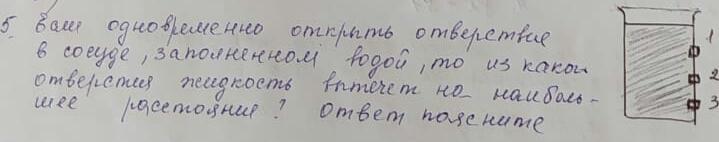 5. Если одновременно открыть отверстия
в сосуде, заполненном водой, то из какой
отверстия жидкость вытечет на наиболь-
шее расстояние? ответ поясните
1
2
3